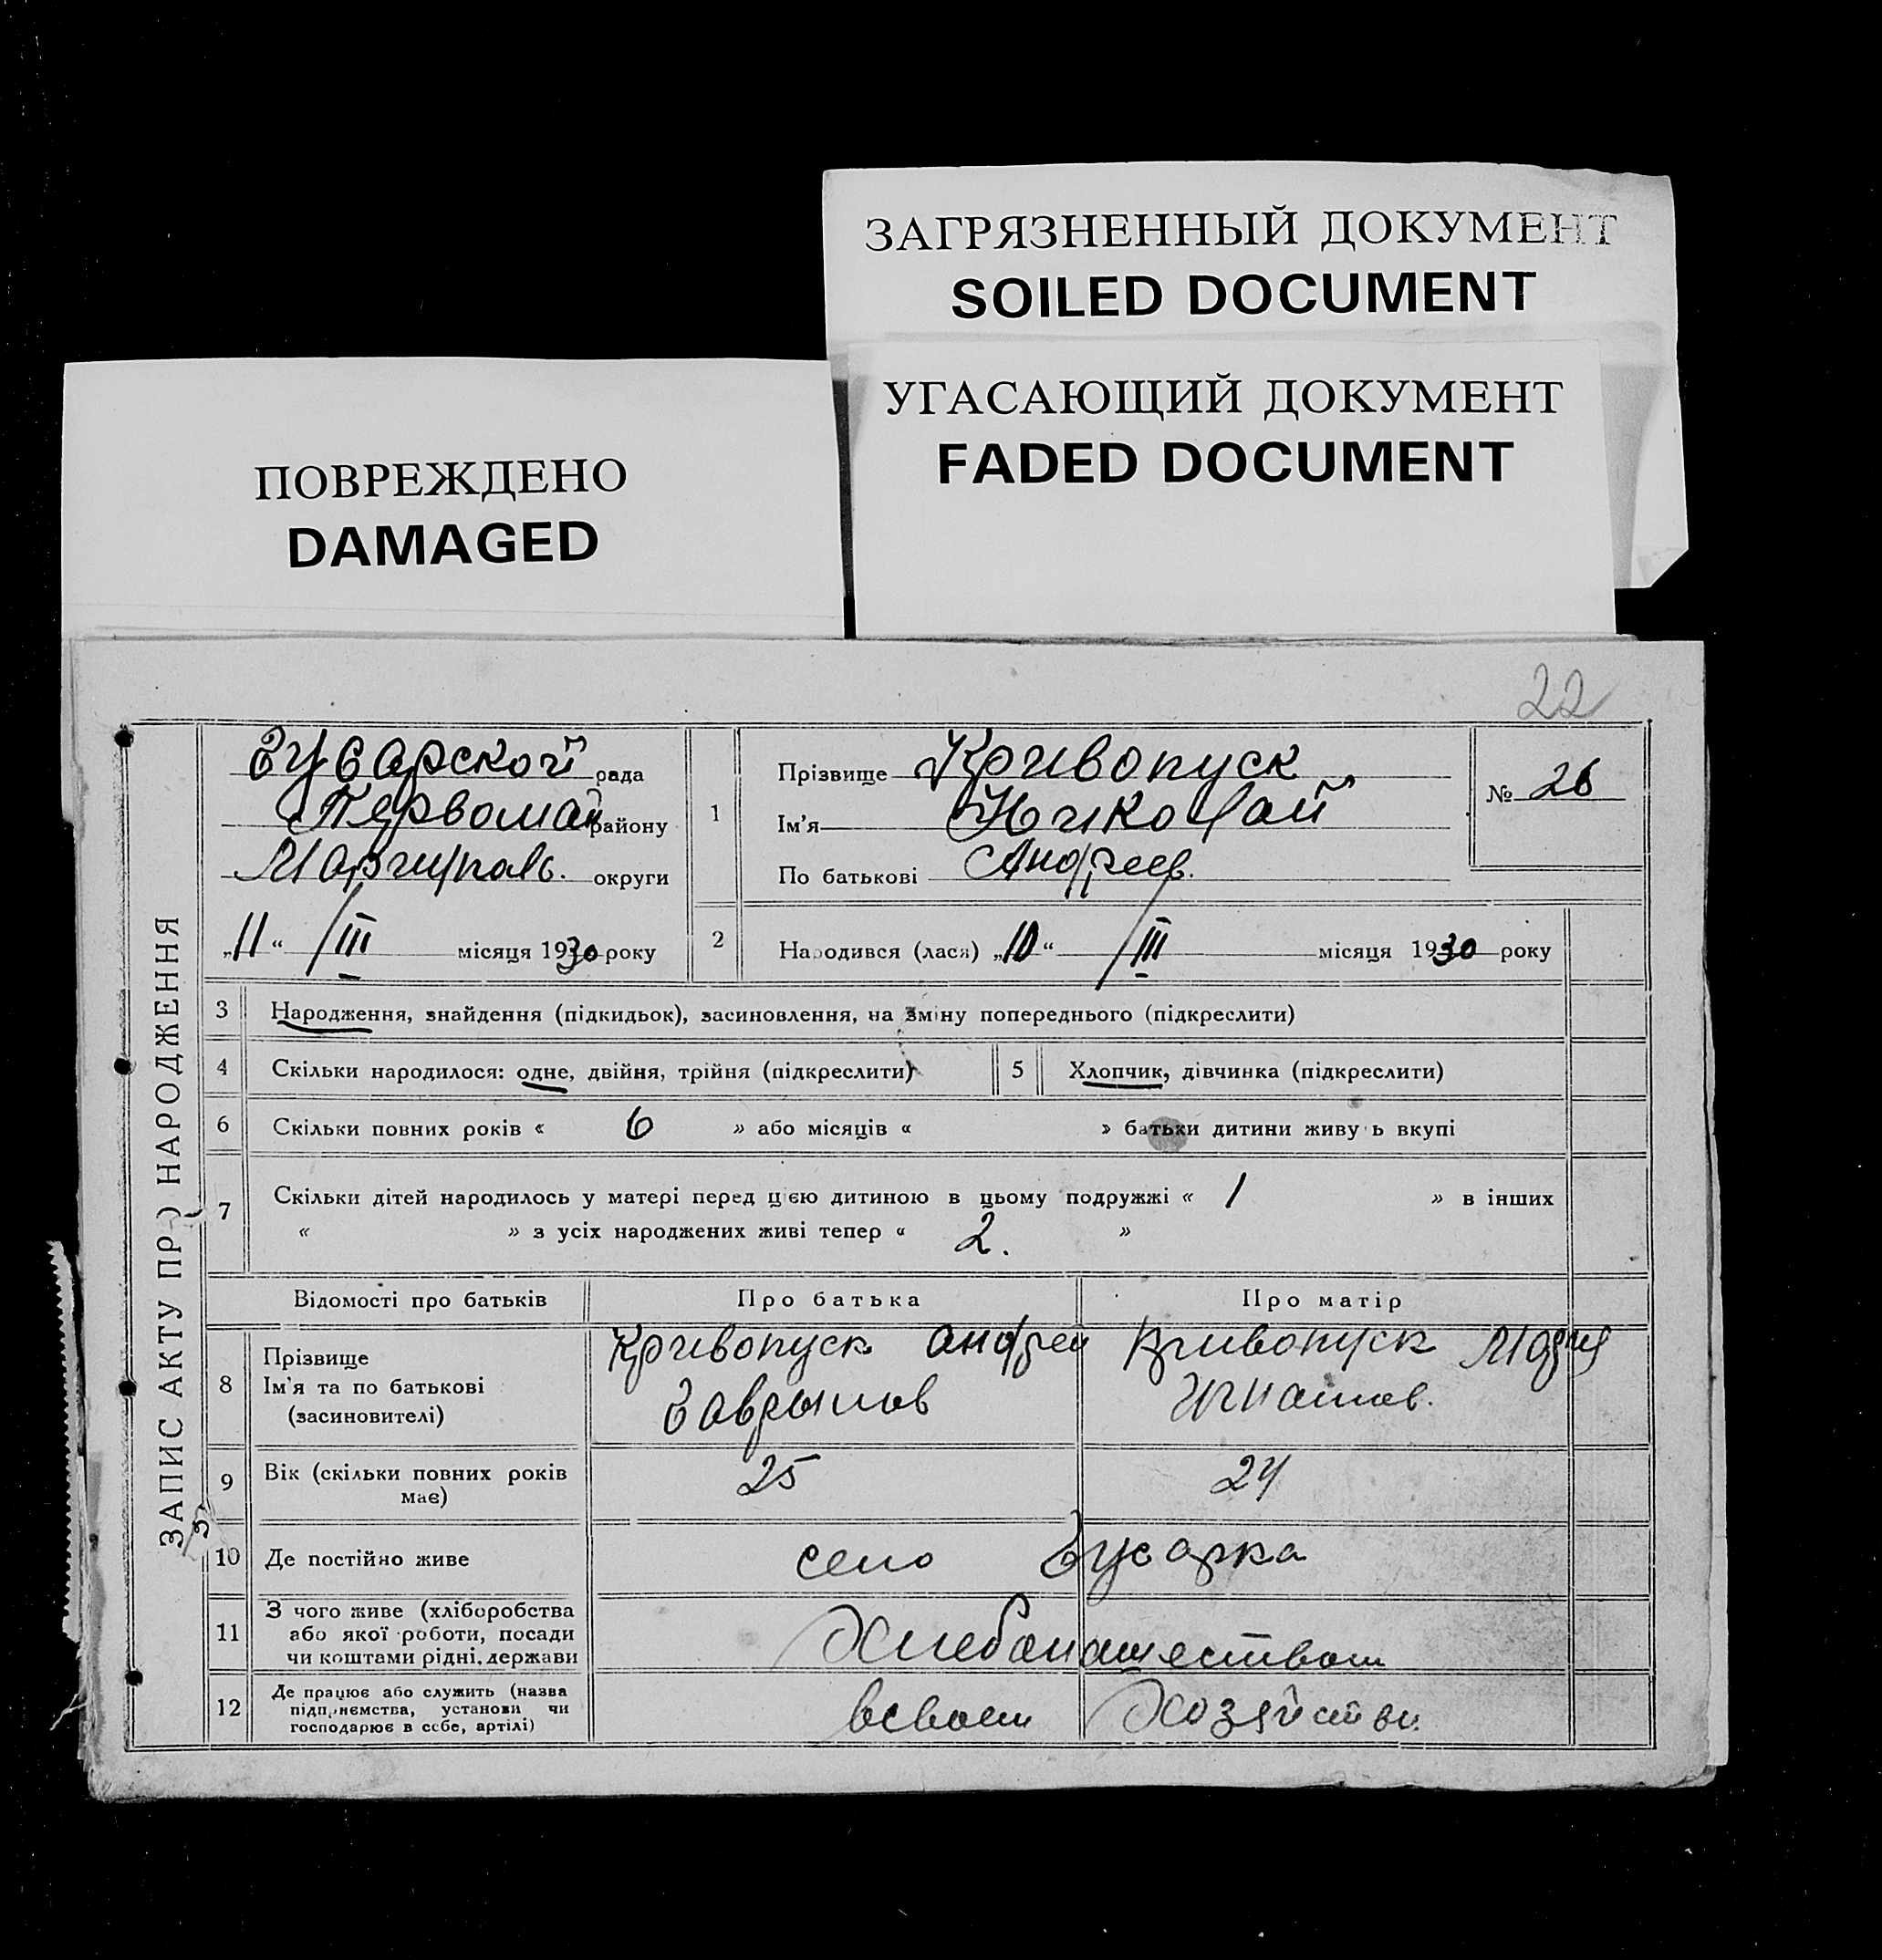 ЗАГРЯЗНЕННЫЙ ДОКУМЕНТ
SOILED DOCUMENT
УГАСАЮЩИЙ ДОКУМЕНТ
FADED DOCUMENT
ПОВРЕЖДЕНО
DAMAGED
22
ЗАПИС АКТУ ПРО НАРОДЖЕННЯ
Гусарской рада
Первомай району
Мариупаль. округи
„11“ /III місяця 1930 року
1
Прізвище Кривопуск
Ім'я Николай
По батькові Андреев.
№ 26
2 Народився (лася) „10“ /III місяця 1930 року
3 Народження, знайдення (підкидьок), засиновлення, на зміну попереднього (підкреслити)
4 Скільки народилося: одне, двійня, трійня (підкреслити) 5 Хлопчик, дівчинка (підкреслити)
6 Скільки повних років « 6 » або місяців « » батьки дитини живуть вкупі
7 Скільки дітей народилось у матері перед цією дитиною в цьому подружжі « 1 » в інших
« » з усіх народжених живі тепер « 2. »
Відомості про батьків Про батька Про матір
8 Прізвище
Ім'я та по батькові
(засиновителі)
Кривопуск Андреи
Гаврылов
Кривопуск Мария
Игнатов.
9 Вік (скільки повних років
має) 25 24
10 Де постійно живе село Гусарка
11 З чого живе (хліборобства
або якої роботи, посади
чи коштами рідні, держави
Хлебапашеством
12 Де працює або служить (назва
підприємства, установи чи
господарює в себе, артілі)
всвоем Хозяйстви